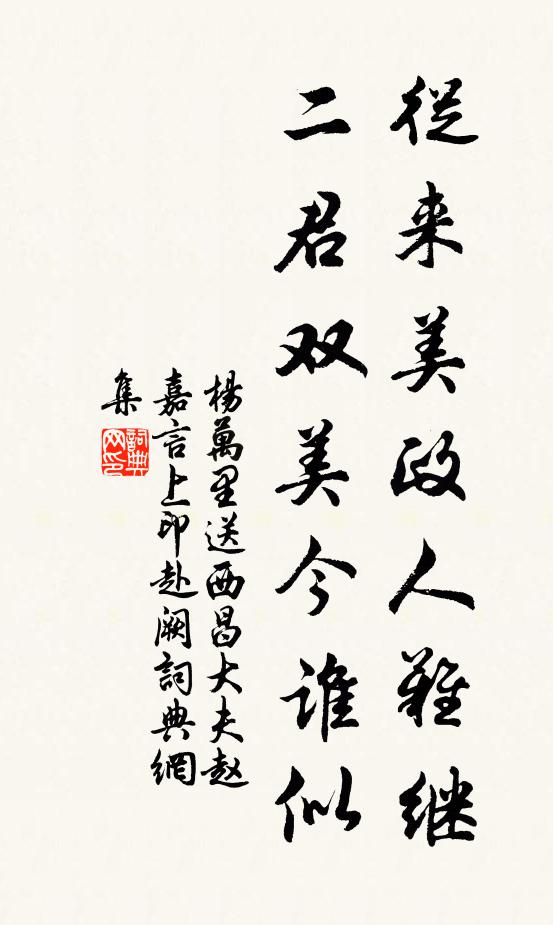 從来美政人難继
二君双美今谁似
楊萬里送西昌大夫赵
嘉言上印赴阙詞典網
集
詞典
网印